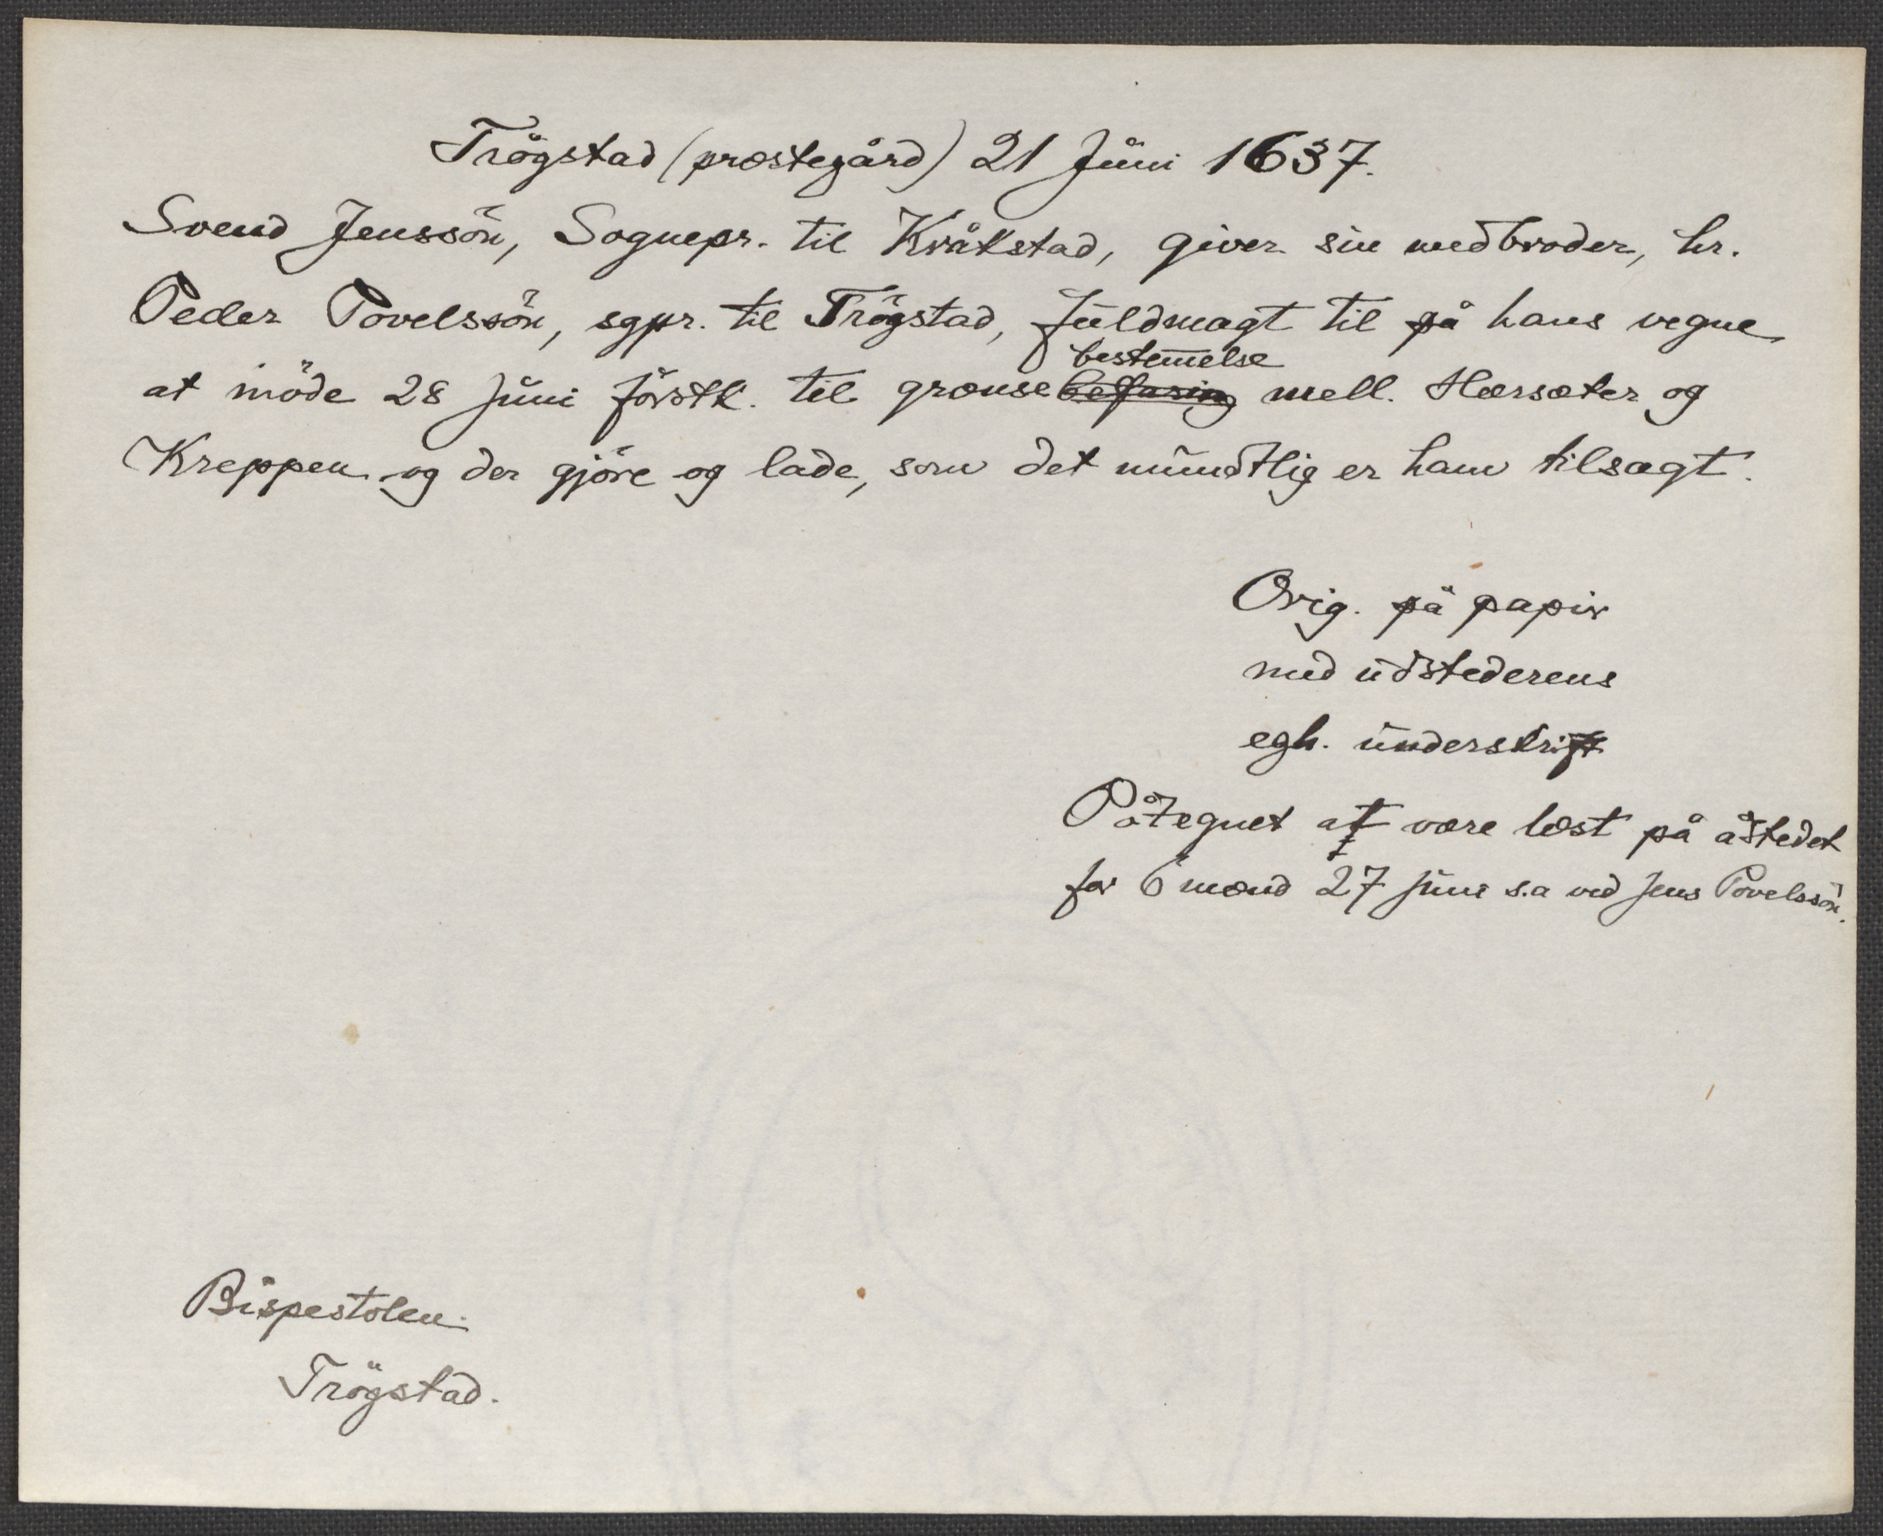 Trögstad (præstegård) 21 Juni 1637.
Svend Jenssön, Sognepr. til Kråkstad, giver sin medbroder, hr.
Peder Povelssön, sgpr. til Trögstad, fuldmagt til på hans vegne
at möde 28 Juni förstk. til grænsebestemmelse mell. Hærsæter og
Kreppen og der gjöre og lade, som det mundtlig er ham tilsagt.
Orig. på papir
med udstederens
egh. underskrift
Påtegnet at være læst på åstedet
for 6 mænd 27 Juni s.a ved Jens Povelssön.
Bispestolen.
Trögstad.